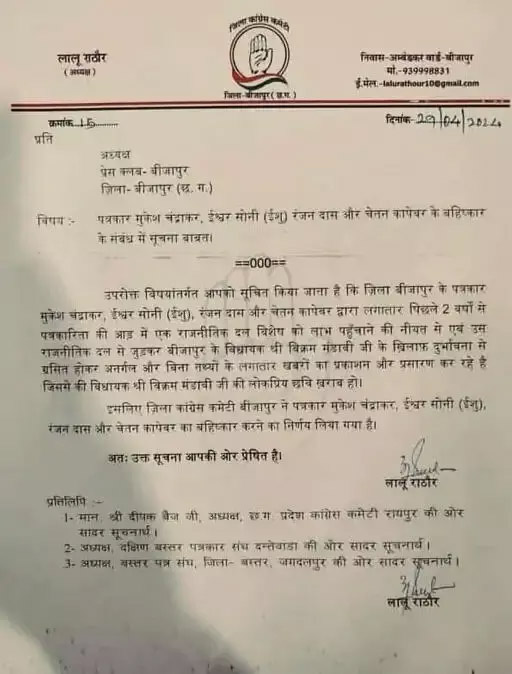 जिला कांग्रेस कमेटी
लालू राठौर
(अध्यक्ष)
निवास-अम्बेडकर वार्ड-बीजापुर
मो.-939998831
ई.मेल.-lalurathour10@gmail.com
जिला-बीजापुर (छ.ग.)
क्रमांक 15
दिनांक- 29/04/2024
प्रति
अध्यक्ष
प्रेस क्लब- बीजापुर
ज़िला- बीजापुर (छ. ग.)
विषय :- पत्रकार मुकेश चंद्राकर, ईश्वर सोनी (ईशु) रंजन दास और चेतन कापेवर के बहिष्कार
के संबंध में सूचना बाबत।
==000==
उपरोक्त विषयांतर्गत आपको सूचित किया जाता है कि ज़िला बीजापुर के पत्रकार
मुकेश चंद्राकर, ईश्वर सोनी (ईशु), रंजन दास और चेतन कापेवर द्वारा लगातार पिछले 2 वर्षो से
पत्रकारिता की आड़ में एक राजनीतिक दल विशेष को लाभ पहुँचाने की नीयत से एवं उस
राजनीतिक दल से जुड़कर बीजापुर के विधायक श्री विक्रम मंडावी जी के ख़िलाफ़ दुर्भावना से
ग्रसित होकर अनर्गल और बिना तथ्यों के लगातार खबरों का प्रकाशन और प्रसारण कर रहे है
जिससे की विधायक श्री विक्रम मंडावी जी की लोकप्रिय छवि ख़राब हो।
इसलिए ज़िला कांग्रेस कमेटी बीजापुर ने पत्रकार मुकेश चंद्राकर, ईश्वर सोनी (ईशु),
रंजन दास और चेतन कापेवर का बहिष्कार करने का निर्णय लिया गया है।
अतः उक्त सूचना आपकी ओर प्रेषित है।
लालू राठौर
प्रतिलिपि :-
1- मान. श्री दीपक बैज जी, अध्यक्ष, छ.ग. प्रदेश कांग्रेस कमेटी रायपुर की ओर
सादर सूचनार्थ।
2- अध्यक्ष, दक्षिण बस्तर पत्रकार संघ दन्तेवाडा की ओर सादर सूचनार्थ।
3- अध्यक्ष, बस्तर पत्र संघ, जिला- बस्तर, जगदलपुर की ओर सादर सूचनार्थ।
लालू राठौर